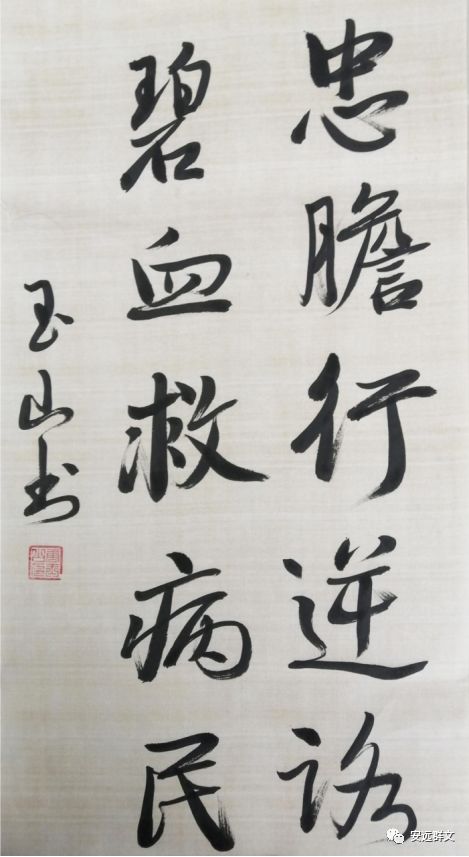 忠膽行逆路
碧血救病民
玉山书
安远群文